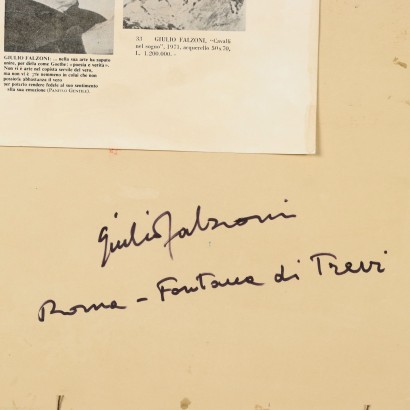 GIULIO FALZONI: ... nella sua arte ha saputo
unire, per dirla come Goethe: «poesia e verità».
Non vi è arte nel copista servile del vero,
ma non vi è arte nemmeno in colui che non
possieda abbastanza il vero
per poterlo rendere fedele al suo sentimento
alla sua emozione (PASOTO GENTILE)
33 GIULIO FALZONI, “Cavalli
nel sogno”, 1971, acquerello 50x70,
L. 1.200.000.-
Giulio Falzoni
Roma - Fontana di Trevi